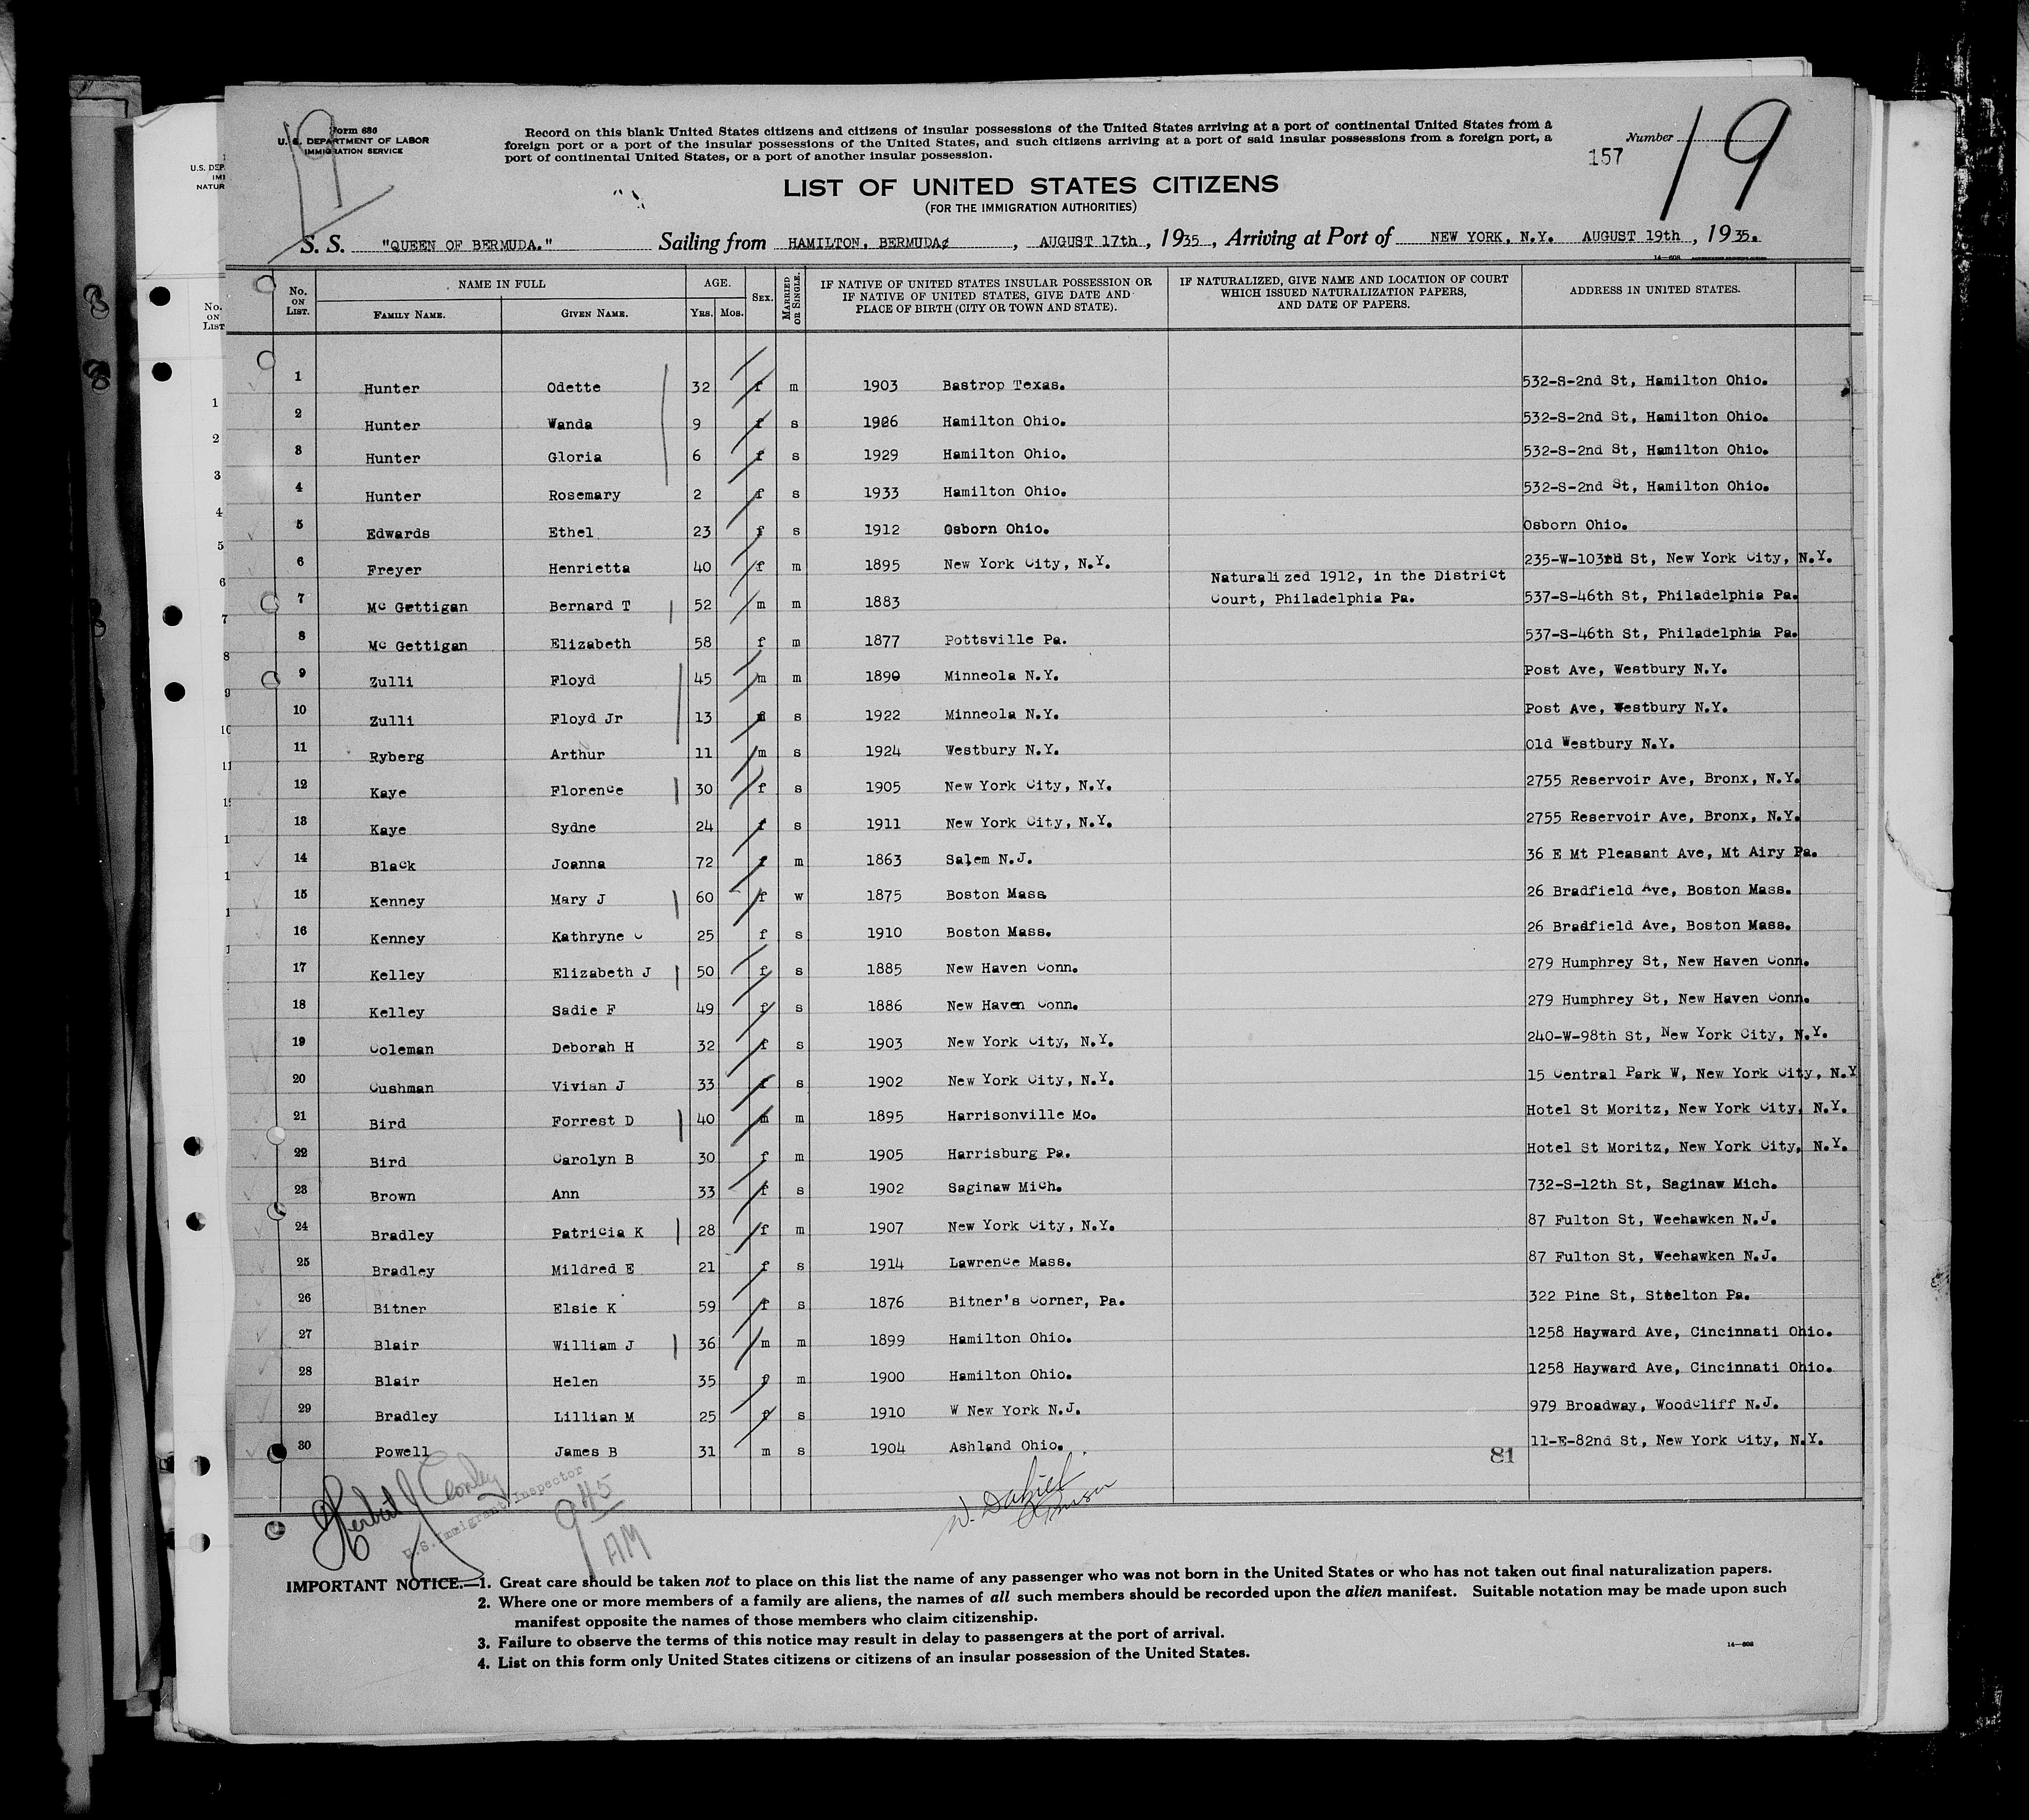 19
Form 686
U. S. DEPARTMENT OF LABOR
IMMIGRATION SERVICE
Record on this blank United States citizens and citizens of insular possessions of the United States arriving at a port of continental United States from a
foreign port or a port of the insular possessions of the United States, and such citizens arriving at a port of said insular possessions from a foreign port, a
port of continental United States, or a port of another insular possession.
Number 19
157
LIST OF UNITED STATES CITIZENS
(FOR THE IMMIGRATION AUTHORITIES)
S. S. "QUEEN OF BERMUDA." Sailing from HAMILTON, BERMUDA, AUGUST 17th, 1935, Arriving at Port of NEW YORK, N.Y. AUGUST 19th, 1935.
14—608
No. ON LIST. NAME IN FULL FAMILY NAME. GIVEN NAME. AGE. YRS. MOS. SEX. MARRIED OR SINGLE. IF NATIVE OF UNITED STATES INSULAR POSSESSION OR IF NATIVE OF UNITED STATES, GIVE DATE AND PLACE OF BIRTH (CITY OR TOWN AND STATE). IF NATURALIZED, GIVE NAME AND LOCATION OF COURT WHICH ISSUED NATURALIZATION PAPERS, AND DATE OF PAPERS. ADDRESS IN UNITED STATES.
1 Hunter Odette 32 f m 1903 Bastrop Texas. 532-S-2nd St, Hamilton Ohio.
2 Hunter Wanda 9 f s 1926 Hamilton Ohio. 532-S-2nd St, Hamilton Ohio.
3 Hunter Gloria 6 f s 1929 Hamilton Ohio. 532-S-2nd St, Hamilton Ohio.
4 Hunter Rosemary 2 f s 1933 Hamilton Ohio. 532-S-2nd St, Hamilton Ohio.
5 Edwards Ethel 23 f s 1912 Osborn Ohio. Osborn Ohio.
6 Freyer Henrietta 40 f m 1895 New York City, N.Y. 235-W-103rd St, New York City, N.Y.
7 Mc Gettigan Bernard T 52 m m 1883 Naturalized 1912, in the District Court, Philadelphia Pa. 537-S-46th St, Philadelphia Pa.
8 Mc Gettigan Elizabeth 58 f m 1877 Pottsville Pa. 537-S-46th St, Philadelphia Pa.
9 Zulli Floyd 45 m m 1890 Minneola N.Y. Post Ave, Westbury N.Y.
10 Zulli Floyd Jr 13 m s 1922 Minneola N.Y. Post Ave, Westbury N.Y.
11 Ryberg Arthur 11 m s 1924 Westbury N.Y. Old Westbury N.Y.
12 Kaye Florence 30 f s 1905 New York City, N.Y. 2755 Reservoir Ave, Bronx, N.Y.
13 Kaye Sydne 24 f s 1911 New York City, N.Y. 2755 Reservoir Ave, Bronx, N.Y.
14 Black Joanna 72 f m 1863 Salem N.J. 36 E Mt Pleasant Ave, Mt Airy Pa.
15 Kenney Mary J 60 f w 1875 Boston Mass 26 Bradfield Ave, Boston Mass.
16 Kenney Kathryne C 25 f s 1910 Boston Mass. 26 Bradfield Ave, Boston Mass.
17 Kelley Elizabeth J 50 f s 1885 New Haven Conn. 279 Humphrey St, New Haven Conn.
18 Kelley Sadie F 49 f s 1886 New Haven Conn. 279 Humphrey St, New Haven Conn.
19 Coleman Deborah H 32 f s 1903 New York City, N.Y. 240-W-98th St, New York City, N.Y.
20 Cushman Vivian J 33 f s 1902 New York City, N.Y. 15 Central Park W, New York City, N.Y
21 Bird Forrest D 40 m m 1895 Harrisonville Mo. Hotel St Moritz, New York City, N.Y.
22 Bird Carolyn B 30 f m 1905 Harrisburg Pa. Hotel St Moritz, New York City, N.Y.
23 Brown Ann 33 f s 1902 Saginaw Mich. 732-S-12th St, Saginaw Mich.
24 Bradley Patricia K 28 f m 1907 New York City, N.Y. 87 Fulton St, Weehawken N.J.
25 Bradley Mildred E 21 f s 1914 Lawrence Mass. 87 Fulton St, Weehawken N.J.
26 Bitner Elsie K 59 f s 1876 Bitner's Corner, Pa. 322 Pine St, Steelton Pa.
27 Blair William J 36 m m 1899 Hamilton Ohio. 1258 Hayward Ave, Cincinnati Ohio.
28 Blair Helen 35 f m 1900 Hamilton Ohio. 1258 Hayward Ave, Cincinnati Ohio.
29 Bradley Lillian M 25 f s 1910 W New York N.J. 979 Broadway, Woodcliff N.J.
30 Powell James B 31 m s 1904 Ashland Ohio. 11-E-82nd St, New York City, N.Y.
81
U.S. Immigrant Inspector
9 45 AM
IMPORTANT NOTICE.—1. Great care should be taken not to place on this list the name of any passenger who was not born in the United States or who has not taken out final naturalization papers.
2. Where one or more members of a family are aliens, the names of all such members should be recorded upon the alien manifest. Suitable notation may be made upon such
manifest opposite the names of those members who claim citizenship.
3. Failure to observe the terms of this notice may result in delay to passengers at the port of arrival.
4. List on this form only United States citizens or citizens of an insular possession of the United States.
14—608